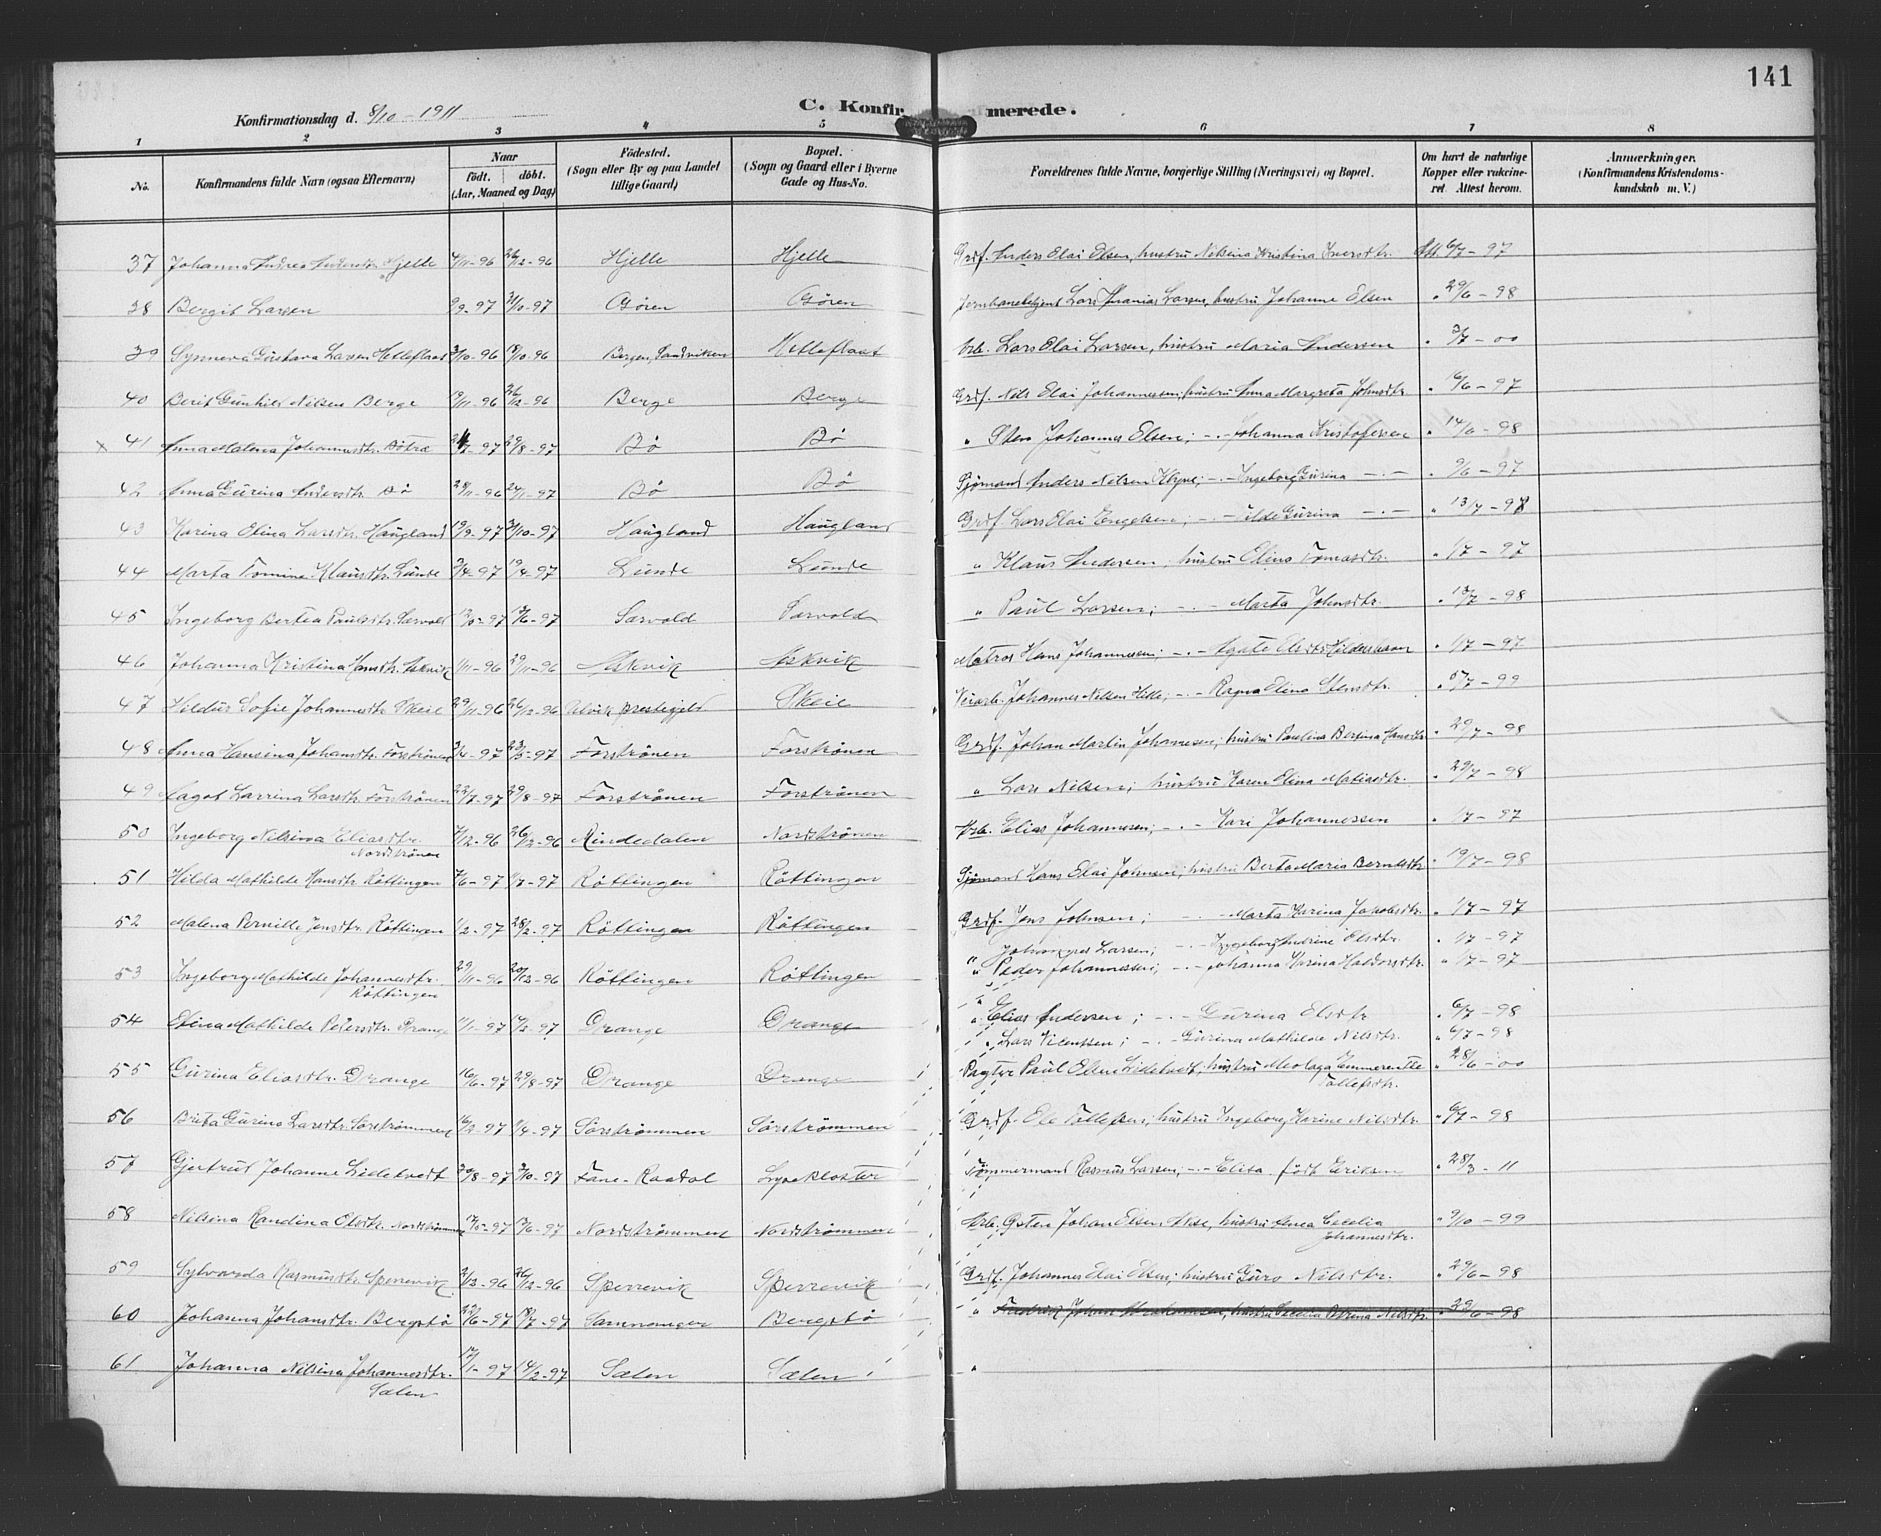 141
C. Konfirmerede.
Konfirmationsdag d. 8/10 - 1911
1 2 3 4 5 6 7 8
No.
Konfirmandens fulde Navn (ogsaa Efternavn)
Naar
födt. döbt.
(Aar, Maaned og Dag)
Födested.
(Sogn eller By og paa Landet
tillige Gaard)
Bopæl.
(Sogn og Gaard eller i Byerne
Gade og Hus-No.
Forældrenes fulde Navne, borgerlige Stilling (Næringsvei) og Bopæl.
Om havt de naturlige
Kopper eller vakcine-
ret. Attest herom.
Anmærkninger.
(Konfirmandens Kristendoms-
kundskab m. V.)
37 Johanna Andrea Hjelle 4/11-96 26/12-96 Hjelle Hjelle Grdf. Anders Elai Olsen, hustru Nilsina Kristina Iversdtr. Att. 6/7-97
38 Bergit Larsen 9/9-97 31/10-97 Gören Gören Jernbanebetjent Lars Larsen, hustru Johanne Olsen " 29/6-98
39 Synneva Gustava Larsen 3/10-96 18/10-96 Bergen, Sandviken Arb. Lars Elai Larsen, hustru Maria Andersen " 3/7-00
40 Berit Gunhild Nilsen Berge 19/11-96 26/12-96 Berge Berge Grdf. Nils Elai Johannessen, hustru Anna Margreta Johnsdtr. " 16/6-97
x 41 Anna Malena Johannesdtr. 97 29/8-97 Bö Bö " Sten Johannes Olsen; -.- Johanna Kristofersen " 14/6-98
42 Anna Gurina Andersdtr. Bö 28/11-96 24/1-97 Bö Bö Sjömand Anders Nilsen; -.- Ingeborg Gurina -.- " 9/6-97
43 Karina Olina Larsdtr. Haugland 19/9-97 31/10-97 Haugland Haugland Grdf. Lars Elai Engelsen; -.- Gurina -.- " 13/7-98
44 Marta Tomine Klausdtr. Lunde 3/4-97 19/4-97 Lunde Lunde " Klaus Andersen, hustru Elina Tomasdtr. " 1/7-97
45 Ingeborg Bertea Paulsdtr. Særvold 97 6-97 Særvold Særvold " Paul Larsen; -.- Marta Johnsdtr. " 13/7-98
46 Johanna Kristina Hansdtr. Askvik 1/11-96 29/11-96 Askvik Askvik Matros Hans Johannesen; -.- Agate " 1/7-97
47 Hildur Sofie Johannesdtr. Skeie 29/11-96 26/12-96 Ulvik prestegjeld Skeie Veiarb. Johannes Nilsen; -.- Ragna Elina " 5/7-99
48 Anna Hansina Johansdtr. Forströnen 3/4-97 23/5-97 Forströnen Forströnen Grdf. Johan Martin Johannesen, hustru Paulina Bertina Hansdtr. " 29/7-98
49 Aagot Larrina Larsdtr. Forströnen 22/7-97 29/8-97 Forströnen Forströnen " Lars Nilsen; hustru Karen Elina Matiasdtr. " 29/7-98
50 Ingeborg Nilsina Eliasdtr. 7/12-96 26/12-96 Rindedalen Nordströnen Arb. Elias Johannesen; -.- Kari Johannessen " 1/7-97
Nordströnen
51 Hilda Mathilde Hansdtr. Röttingen 7/6-97 1/7-97 Röttingen Röttingen Sjömand Hans Elai Johnsen; hustru Berta Maria Berntsdtr. " 19/7-98
52 Malena Pernille Jensdtr. Röttingen 1/2-97 28/2-97 Röttingen Röttingen Grdf. Jens Johnsen; -.- Marta Karina Jakobsdtr. " 1/7-97
" Larsen; -.- Ingeborg Andrine Olsdtr. " 1/7-97
53 Ingeborg Mathilde Johannesdtr. 29/11-96 20/12-96 Röttingen Röttingen " Peder Johannessen; -.- Johanna Karina Haldorsdtr. " 1/7-97
Röttingen
54 Elina Mathilde Pedersdtr. Drange 1/1-97 2-97 Drange Drange " Elias Andersen; -.- Gurina Olsdtr. " 6/7-98
" Lars Vicentsen; -.- Gurina Mathilde Nilsdtr. " 6/7-98
55 Gurina Eliasdtr. Drange 16/6-97 29/8-97 Drange Drange Pagter Paul Olsen Lidetvedt; hustru Emmerentze " 28/6-00
Tollefsdtr.
56 Brita Gurina Larsdtr. Sörströmmen 16/2-97 1/4-97 Sörströmmen Sörströmmen Grdf. Ole Tollefsen; hustru Ingeborg Karine Nilsdtr. " 6/7-98
57 Gjertrud Johanne Lidetvedt 20/8-97 3/10-97 Fane-Raadal Lysekloster Tömmermand Rasmus Larsen, -.- Elisa födt Eriksen " 28/3-11
58 Nilsina Randina Olsdtr. Nordströmmen 97 6-97 Nordströmmen Nordströmmen Arb. Johan Olsen, hustru Anna Cecelia " 9/10-99
Johannesdtr.
59 Sylvarda Rasmusdtr. Sperrevik 96 26/12-96 Sperrevik Sperrevik Grdf. Johannes Elai Olsen; hustru Guro Nilsdtr. " 29/6-98
60 Johanna Johansdtr. Bergstö 22/6-97 18/7-97 Samnanger Bergstö " Fredrik Johan Abrahamsen, hustru Petrina Nilsdtr. " 6-98
61 Johanna Nilsina Johannesdtr. 17/1-97 14/2-97 Sælen Sælen "
Sælen